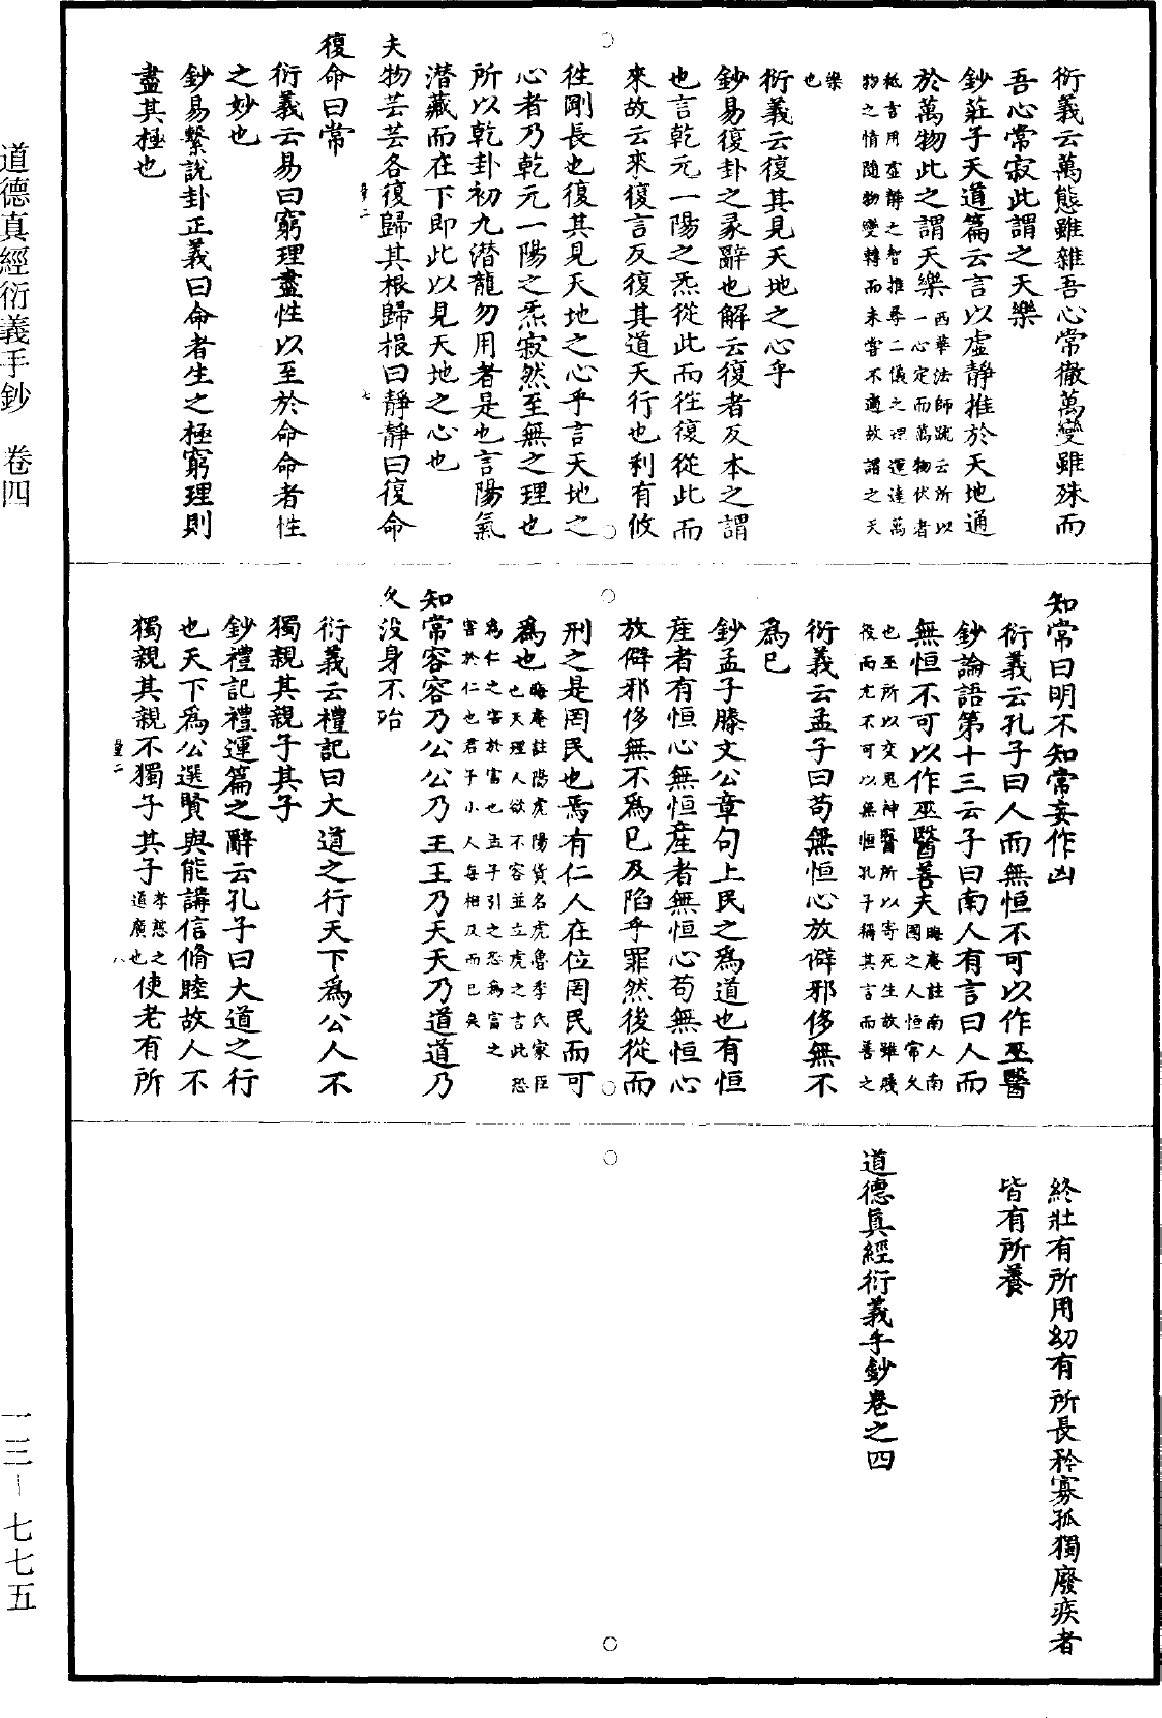 衍義云萬態雖雜吾心常徹萬變雖殊而
吾心常寂此謂之天樂
鈔莊子天道篇云言以虛靜推於天地通
於萬物此之謂天樂西華法師䟽云所以一心定而萬物伏者
秪言用虛靜之智推尋二儀之理運達萬物之情隨物變轉而未嘗不適故謂之天
樂也
衍義云復其見天地之心乎
鈔易復卦之彖辭也解云復者反本之謂
也言乾元一陽之炁從此而徃復從此而
來故云來復言反復其道天行也利有攸
徃剛長也復其見天地之心乎言天地之
心者乃乾元一陽之炁寂然至無之理也
所以乾卦初九潛龍勿用者是也言陽氣
潛藏而在下即此以見天地之心也
夫物芸芸各復歸其根歸根曰靜靜曰復命
復命曰常
衍義云易曰窮理盡性以至於命命者性
之妙也
鈔易繫說卦正義曰命者生之極窮理則
盡其極也
知常曰明不知常妄作凶
衍義云孔子曰人而無恒不可以作巫醫
鈔論語第十三云子曰南人有言曰人而
無恒不可以作巫醫善夫晦庵註南人南國之人恒常久
也巫所以交鬼神醫所以寄死生故雖賤役而尤不可以無恒孔子稱其言而善之
衍義云孟子曰苟無恒心放僻邪侈無不
爲已
鈔孟子滕文公章句上民之爲道也有恒
産者有恒心無恒産者無恒心苟無恒心
放僻邪侈無不爲已及陷乎罪然後從而
刑之是罔民也焉有仁人在位罔民而可
爲也晦庵註陽虎陽貨名虎魯季氏家臣也天理人欲不容並立虎之言此恐
爲仁之害於富也孟子引之恐爲富之害於仁也君子小人每相反而已矣
知常容容乃公公乃王王乃天天乃道道乃
久没身不殆
衍義云禮記曰大道之行天下爲公人不
獨親其親子其子
鈔禮記禮運篇之辭云孔子曰大道之行
也天下爲公選賢與能講信脩睦故人不
獨親其親不獨子其子孝慈之道廣也使老有所
終壯有所用幼有所長矜寡孤獨廢疾者
皆有所養
道德真經衍義手鈔卷之四
道德真經衍義手鈔 卷四
一三－七七五